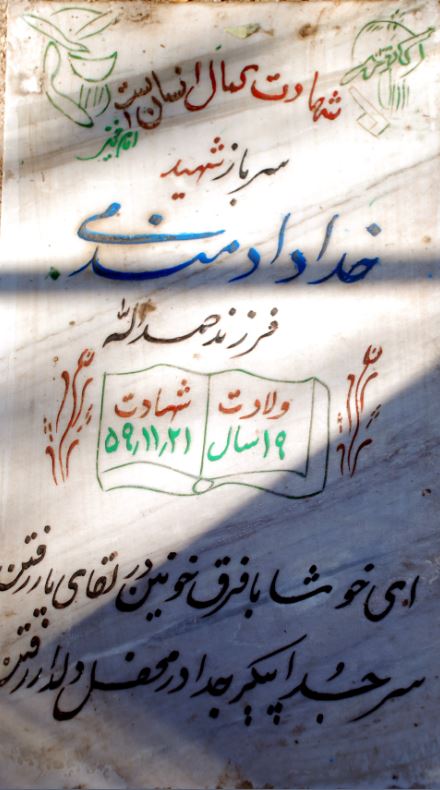 شهادت کمال انسان است
امام خمینی
سرباز شهید
خداداد
فرزند صمدالله
ولادت شهادت
۱۹ سال ۵۹٫۱۱٫۲۱
ای خوشا با فرق خونین در لقای یار رفتن
سر جدا پیکر جدا در محفل دلدار رفتن